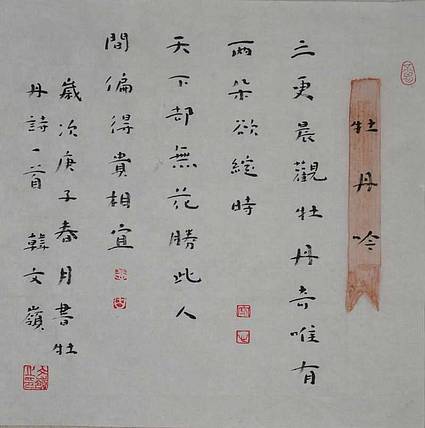 牡丹吟
三更晨觀牡丹奇唯有
兩朵欲綻時
天下却無花勝此人
間偏得貴相宜
歲次庚子春月書牡
丹詩一首 韓文嶺